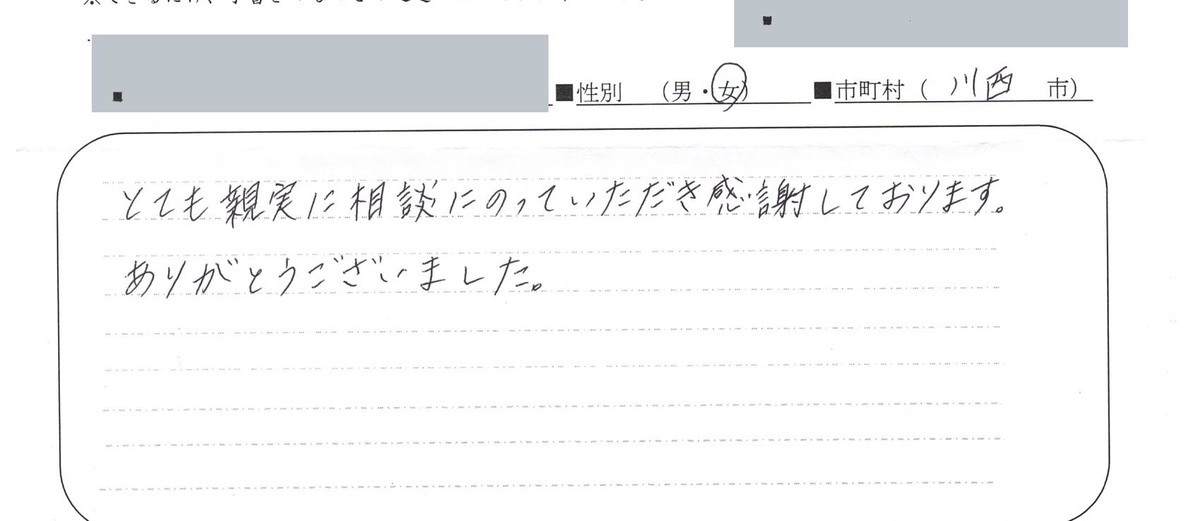 ■性別　（男・女）　■市町村（　川西　市）
とても親実に相談にのっていただき感謝しております。
ありがとうございました。